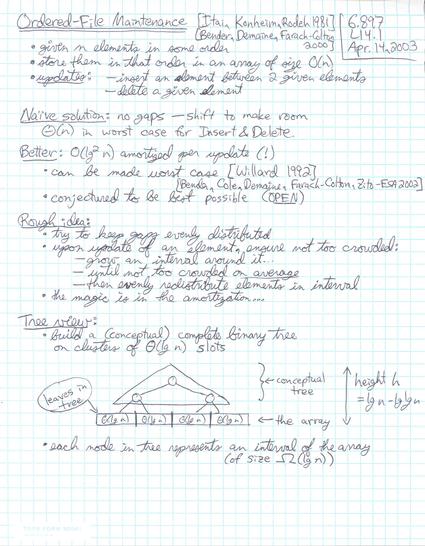 Ordered-File Maintenance [Itai, Konheim, Rodeh 1981]
[Bender, Demaine, Farach-Colton 2000]
6.897
L14.1
Apr. 14, 2003
• given n elements in some order
• store them in that order in an array of size O(n)
• updates: – insert an element between 2 given elements
– delete a given element
Naive solution: no gaps – shift to make room
Θ(n) in worst case for Insert & Delete.
Better: O(lg² n) amortized per update (!)
• can be made worst case [Willard 1992]
[Bender, Cole, Demaine, Farach-Colton, Zito - ESA 2002]
• conjectured to be best possible (OPEN)
Rough idea:
• try to keep gaps evenly distributed
• upon update of an element, ensure not too crowded:
– grow an interval around it...
– until not too crowded on average
– then evenly redistribute elements in interval
• the magic is in the amortization....
Tree view:
• build a (conceptual) complete binary tree
on clusters of Θ(lg n) slots
leaves in tree
conceptual tree
height h
= lg n - lg lg n
Θ(lg n) Θ(lg n) Θ(lg n) Θ(lg n) ← the array
• each node in tree represents an interval of the array
(of size Ω(lg n))